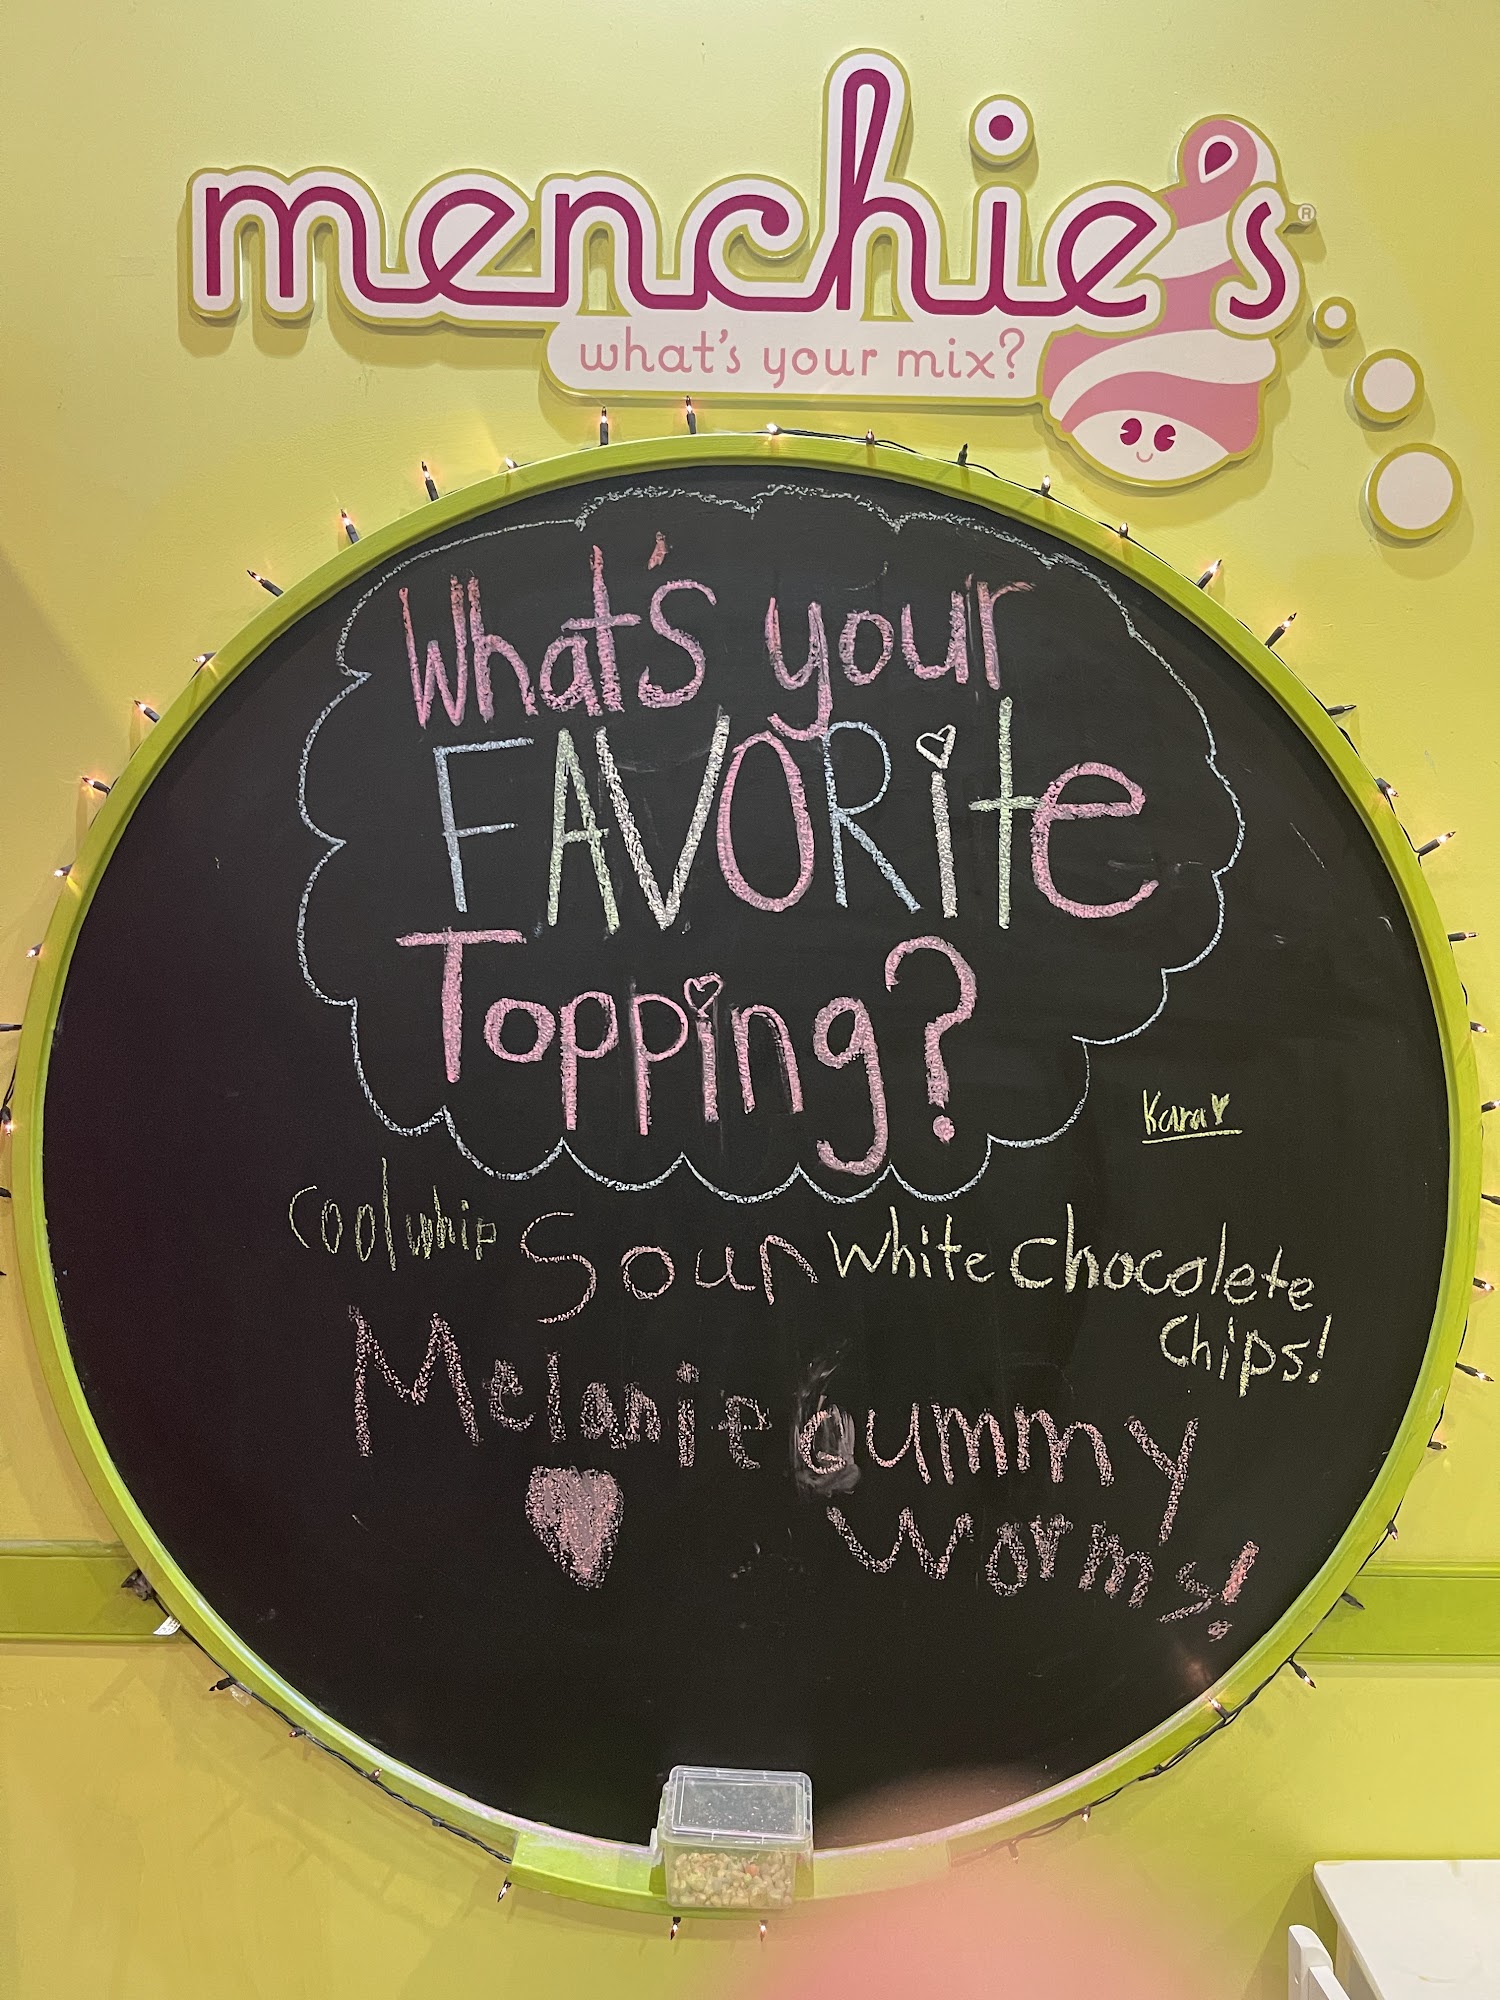 menchie's®
what's your mix?
What's your
FAVORite
Topping?
Kara
Coolwhip
Sour
White Chocolete
Chips!
Melanie
Gummy
Worms!